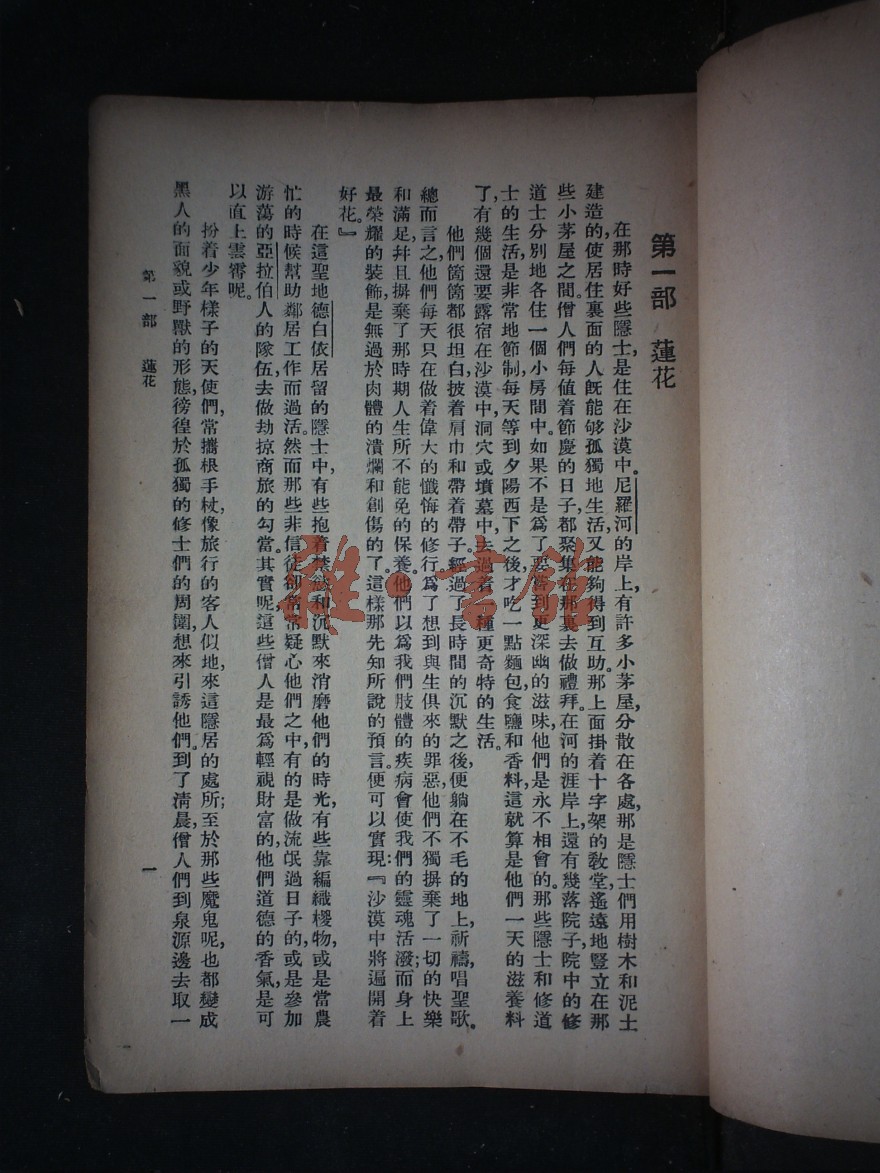 第一部　蓮花
在那時好些隱士，是住在沙漠中。尼羅河的岸上，有許多小茅屋，分散在各處，那是隱士們用樹木和泥土
建造的，使居住裏面的人旣能够孤獨地生活，又能夠得到互助。那上面掛着十字架的敎堂，遙遠地豎立在那
些小茅屋之間。僧人們每値着節慶的日子，都聚集在那裏去做禮拜。在河的涯岸上，還有幾落院子，院中的修
道士分別地各住一個小房間中。如果不是爲了要嘗到更深幽的滋味，他們是永不相會的。那些隱士和修道
士的生活，是非常地節制，每天等到夕陽西下之後，才吃一點麵包，食鹽和香料，這就算是他們一天的滋養料
了，有幾個還要露宿在沙漠中，洞穴或墳墓中，去過着一種更奇特的生活。
他們箇箇都很坦白，披着肩巾和帶着帶子，經過了長時間的沉默之後，便躺在不毛的地上，祈禱，唱聖歌。
總而言之，他們每天只在做着偉大的懺悔的修行，爲了想到與生俱來的罪惡，他們不獨摒棄了一切的快樂
和滿足，幷且摒棄了那時期人生所不能免的保養。他們以爲我們肢體的疾病，會使我們的靈魂活潑；而身上
最榮耀的裝飾，是無過於肉體的潰爛和創傷的了。這樣那先知所說的預言。便可以實現：『沙漠中將遍開着
好花。』
在這聖地德白依居留的隱士中，有些抱着禁慾和沉默來消磨他們的時光，有些靠編織椶物，或是當農
忙的時候幫助鄰居工作而過活。然而那些非信徒卻常常疑心他們之中，有的是做流氓過日子的，或是參加
游蕩的亞拉伯人的隊伍，去做劫掠商旅的勾當。其實呢，這些僧人是最爲輕視財富的，他們道德的香氣，是可
以直上雲霄呢。
扮着少年樣子的天使們，常攜根手杖，像旅行的客人似地，來這隱居的處所；至於那些魔鬼呢，也都變成
黑人的面貌或野獸的形態，徬徨於孤獨的修士們的周圍，想來引誘他們。到了淸晨，僧人們到泉源邊去取一
第一部　蓮花
一
雅·書館